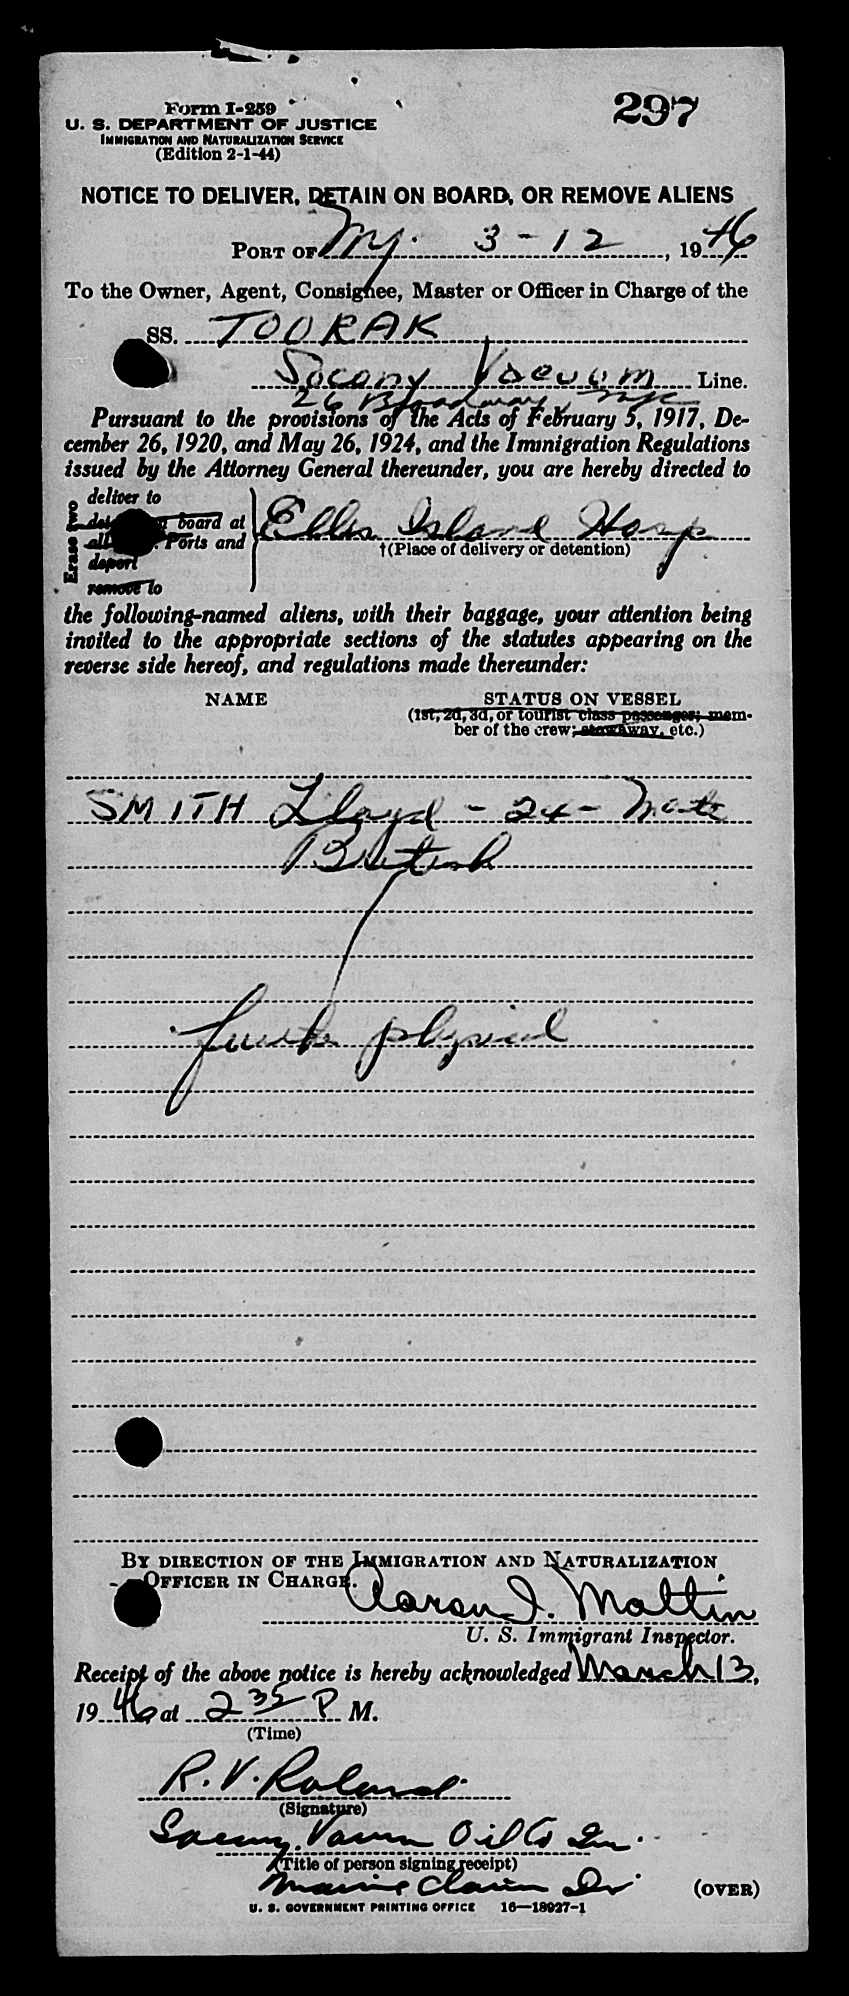 Form I-259
297
U. S. DEPARTMENT OF JUSTICE
IMMIGRATION AND NATURALIZATION SERVICE
(Edition 2-1-44)
NOTICE TO DELIVER, DETAIN ON BOARD, OR REMOVE ALIENS
PORT OF NY. 3-12, 1946
To the Owner, Agent, Consignee, Master or Officer in Charge of the
SS. TOORAK
Socony Vacuum Line.
26 Broadway, NYC
Pursuant to the provisions of the Acts of February 5, 1917, De-
cember 26, 1920, and May 26, 1924, and the Immigration Regulations
issued by the Attorney General thereunder, you are hereby directed to
Erase two
deliver to
board at
Ports and
deport
remove to
Ellis Island Hosp
†(Place of delivery or detention)
the following-named aliens, with their baggage, your attention being
invited to the appropriate sections of the statutes appearing on the
reverse side hereof, and regulations made thereunder:
NAME STATUS ON VESSEL
(1st, 2d, 3d, or tourist class passenger; mem-
ber of the crew; stowaway, etc.)
SMITH Lloyd - 24 - Mate
British
further physical
BY DIRECTION OF THE IMMIGRATION AND NATURALIZATION
OFFICER IN CHARGE.
Aaron I. Mattin
U. S. Immigrant Inspector.
Receipt of the above notice is hereby acknowledged March 13,
1946 at 2 35 P M.
(Time)
R. V. Roland
(Signature)
Socony Vacuum Oil Co Inc.
(Title of person signing receipt)
Marine Div.
(OVER)
U. S. GOVERNMENT PRINTING OFFICE 16—18927-1